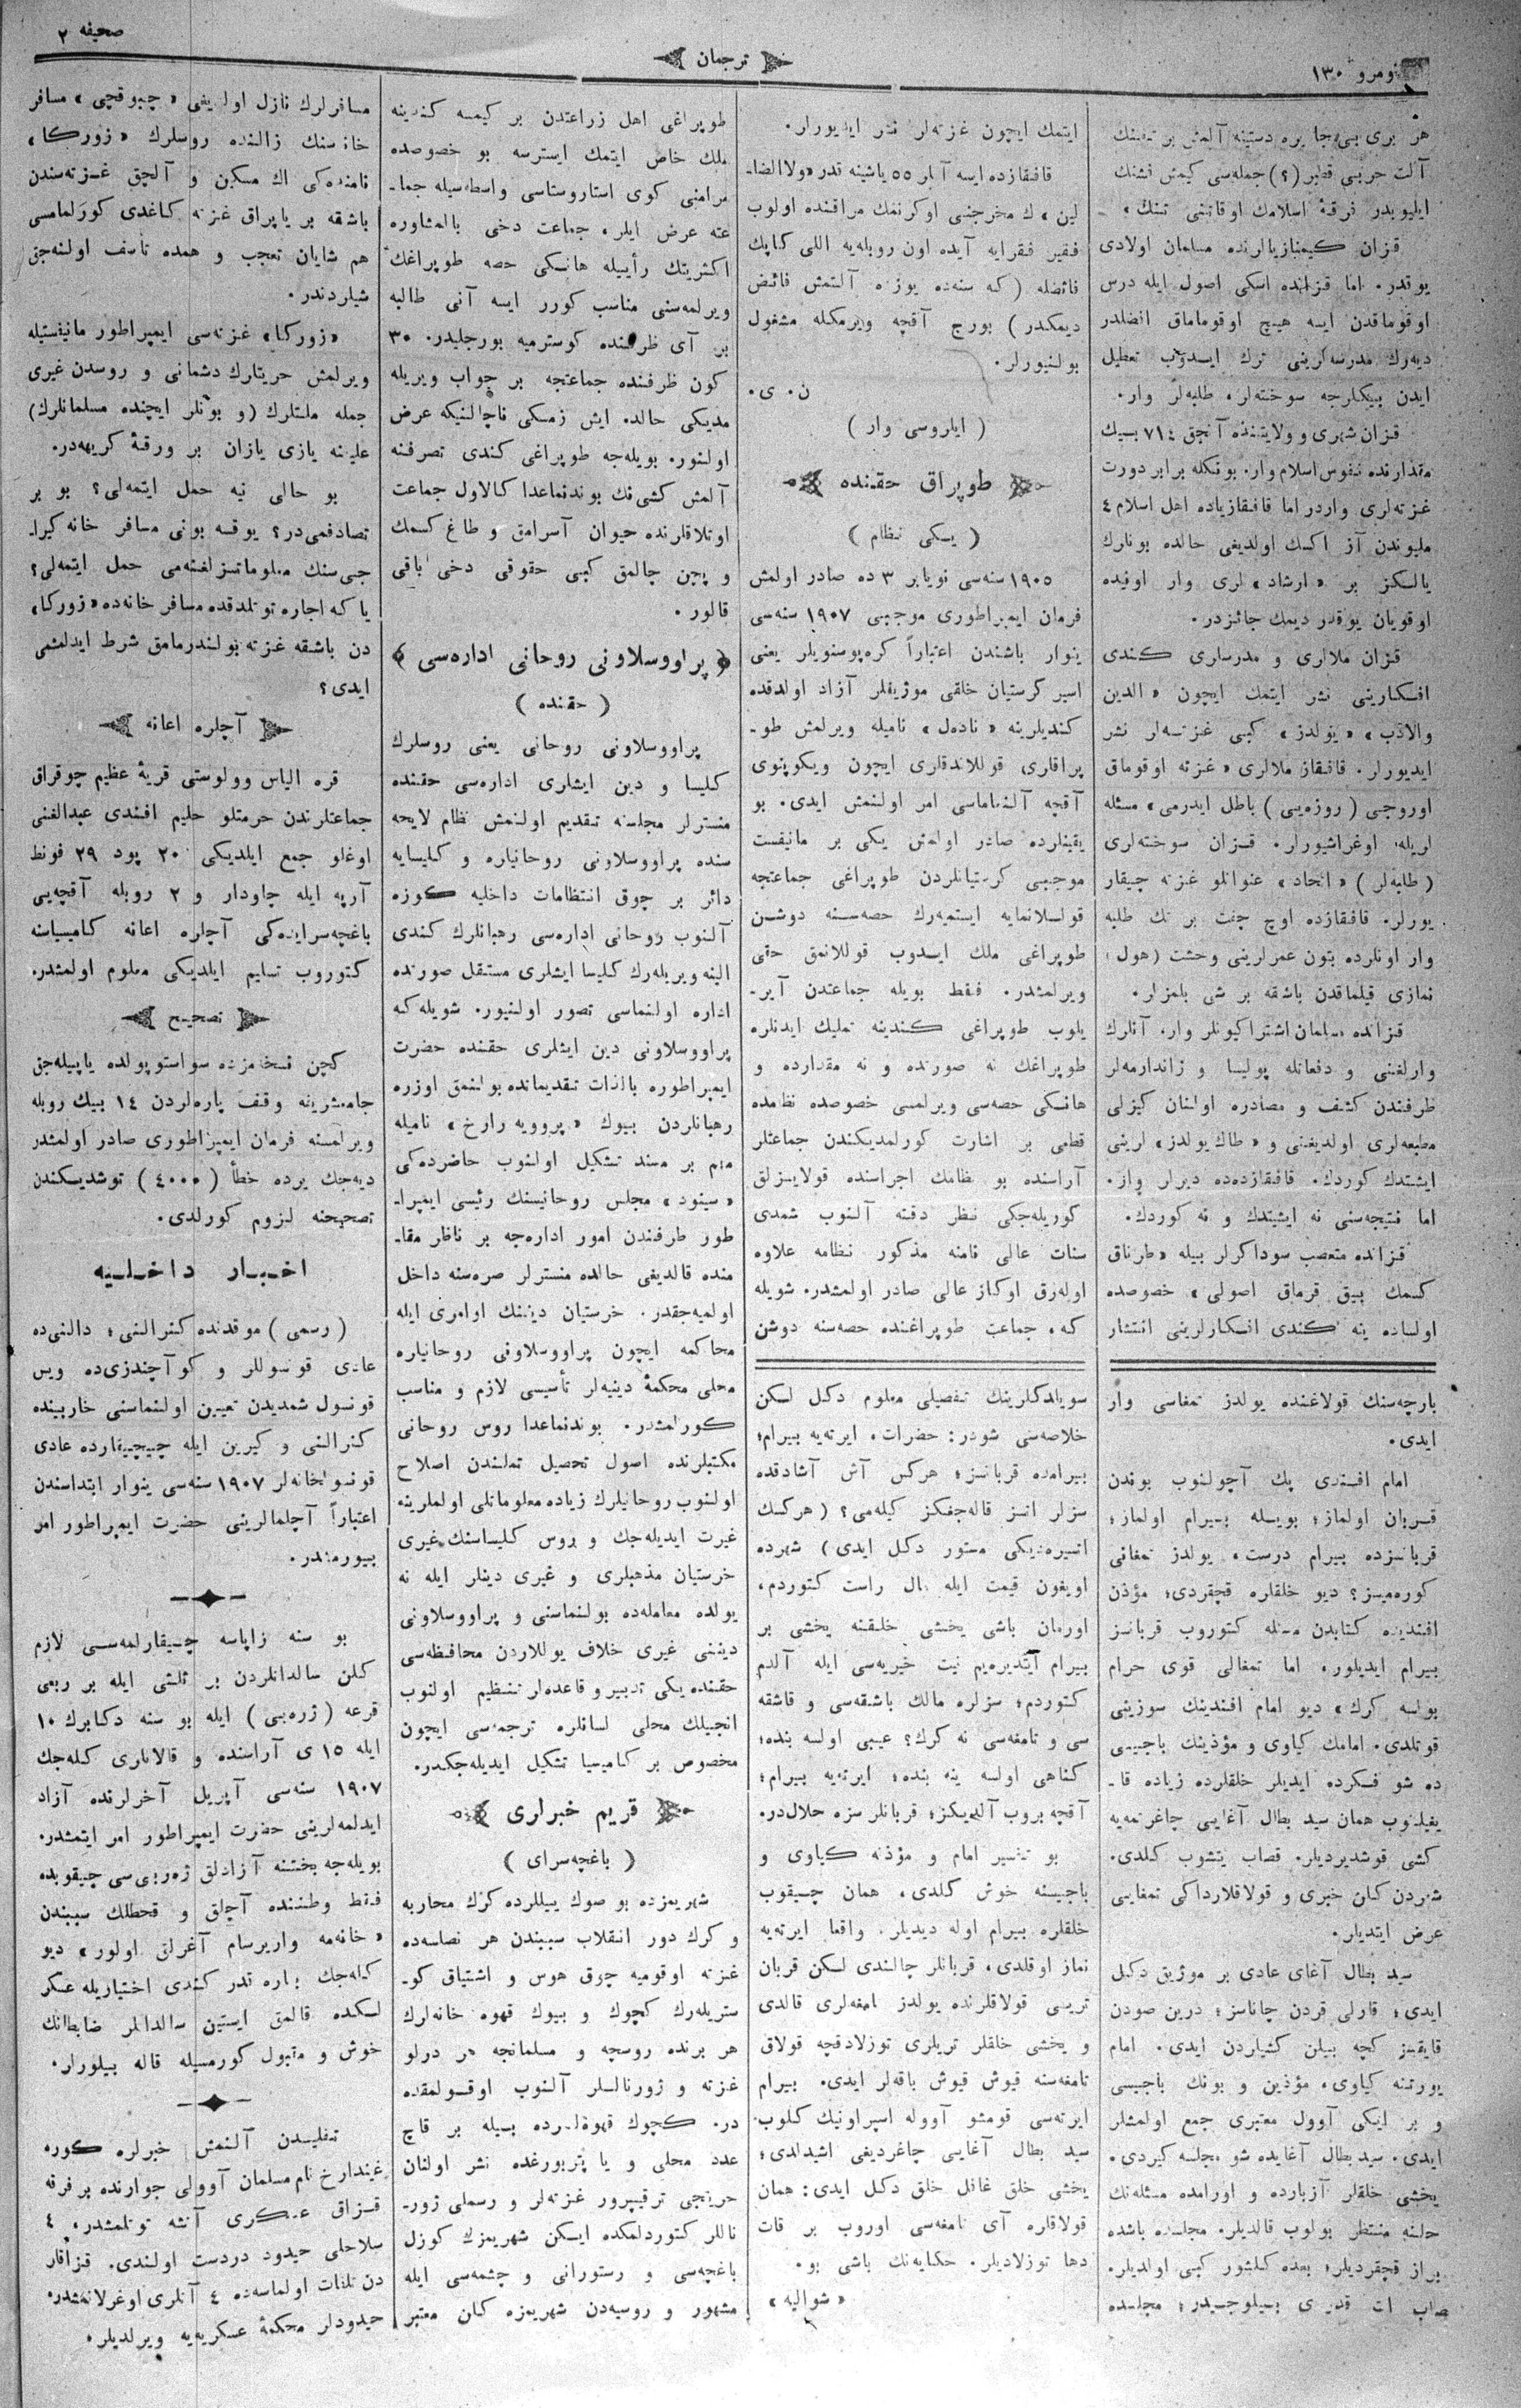 نومرو ۱۳۰
ترجمان
صحیفه ۲
هر بری بی‌جا یره دستینه آلمش بر تفنك
آلت حربی قطیر (؟) جمله‌سی کیمش فشنك
ایلیوبدر فرقهٔ اسلامك اوقاتنی تنك»
قزان کیمنازیالرنده مسلمان اولادی
یوقدر. اما قزانده اسکی اصول ایله درس
اوقوماقدن ایسه هیچ اوقوماماق افضلدر
دیه‌رك مدرسه‌لرینی ترك ایدوب تعطیل
ایدن بیکلرجه سوخته‌لر، طلبه‌لر وار.
قزان شهری و ولایتنده آنجق ۷۱٤ بیك
مقدارنده نفوس اسلام وار. بونکله برابر دورت
غزته‌لری واردر اما قافقازیاده اهل اسلام ٤
ملیوندن آز اکسك اولدیغی حالده بونلرك
یالکز بر «ارشاد» لری وار اونیده
اوقویان یوقدر دیمك جائزدر.
قزان ملالری و مدرسلری کندی
افکارینی نشر ایتمك ایچون «الدین
والادب» «یولدز» کبی غزته‌لر نشر
ایدیورلر. قافقاز ملالری «غزته اوقوماق
اوروجی (روزه‌یی) باطل ایدرمی» مسئله
لریله اوغراشیورلر. قزان سوخته‌لری
(طلبه‌لر) «اتحاد» عنوانلو غزته چیقار
یورلر. قافقازده اوچ چفت بر تك طلبه
وار اونلرده بتون عمرلرینی وحشت (هول)
نمازی قیلماقدن باشقه بر شی بلمزلر.
قزانده مسلمان اشتراکیونلر وار، آنلرك
وارلغنی و دفعاتله پولیسا و ژاندارمه‌لر
طرفندن کشف و مصادره اولنان کیزلی
مطبعه‌لری اولدیغنی و «طاك یولدز» لرینی
ایشتدك کوردك. قافقازده‌ده دیرلر وار.
اما نتیجه‌سنی نه ایشیتدك و نه کوردك.
قزانده متعصب سوداکرلر بیله «طرناق
کسمك بیق قرماق اصولی» خصوصده
اولساده ینه کندی افکارلرینی انتشار
ایتمك ایچون غزته‌لر نشر ایدیورلر.
قافقازده ایسه آبلر ٥٥ یاشینه قدر «ولاالضا-
لین» ك مخرجنی اوکرنمك مراقنده اولوب
فقیر فقرایه آیده اون روبله‌یه اللی کاپك
فائضله (که سنه‌ده یوزه آلتمش فائض
دیمکدر) بورج آقچه ویرمکله مشغول
بولنیورلر.
ن. ی.
(ایلروسی وار)
طوپراق حقنده
(یسکی نظام)
۱۹۰٥ سنه‌سی نویابر ۳ ده صادر اولمش
فرمان ایمپراطوری موجبی ۱۹۰۷ سنه‌سی
ینوار باشندن اعتباراً کره‌پوستنویلر یعنی
اسیر کرستیان خلقی موژیقلر آزاد اولدقده
کندیلرینه «نادەل» نامیله ویرلمش طو-
پراقلری قوللاندقلری ایچون ویکوپنوی
آقچه آلنماماسی امر اولنمش ایدی. بو
یقینلرده صادر اولمش یکی بر مانیفست
موجبی کرستیانلردن طوپراغی جماعتجه
قوللانمایه ایستمیه‌رك حصه‌سنه دوشن
طوپراغی ملك ایدوب قوللانمق حقی
ویرلمشدر. فقط بویله جماعتدن آیر-
یلوب طوپراغی کندینه تملیك ایدنلره
طوپراغك نه صورتده و نه مقدارده و
هانسکی حصه‌سی ویرلمسی خصوصده نظامده
قطعی بر اشارت کورلمدیکندن جماعتلر
آراسنده بو نظامك اجراسنده قولایسزلق
کوریله‌جکی نظر دقته آلنوب شمدی
سنات عالی نامنه مذکور نظامه علاوه
اوله‌رق اوکاز عالی صادر اولمشدر. شویله
که، جماعت طوپراغنده حصه‌سنه دوشن
طوپراغی اهل زراعتدن بر کیمسه کندینه
ملك خاص ایتمك ایسترسه بو خصوصده
مرامنی کوی استاروستاسی واسطه‌سیله جما-
عته عرض ایلر، جماعت دخی بالمشاوره
اکثریتك رأییله هانسکی حصه طوپراغك
ویرلمه‌سنی مناسب کورر ایسه آنی طالبه
بر آی ظرفنده کوسترمیه بورجلیدر. ۳۰
کون ظرفنده جماعتجه بر جواب ویریله
مدیکی حالده ایش زمسکی ناچالنیکه عرض
اولنور. بویله‌جه طوپراغی کندی تصرفنه
آلمش کشی‌نك بوندنماعدا کالاول جماعت
اوتلاقلرنده حیوان آسرامق و طاغ کسمك
و پچن چالمق کبی حقوقی دخی باقی
قالور.
﴿پراووسلاونی روحانی اداره‌سی﴾
(حقنده)
پراووسلاونی روحانی یعنی روسلرك
کلیسا و دین ایشلری اداره‌سی حقنده
منسترلر مجلسنه تقدیم اولنمش نظام لایحه
سنده پراووسلاونی روحانیلره و کلیسایه
دائر بر چوق انتظامات داخلیه کوزه
آلنوب روحانی اداره‌سی رهبانلرك کندی
الینه ویریله‌رك کلیسا ایشلری مستقل صورتده
اداره اولنماسی تصور اولنیور. شویله که
پراووسلاونی دین ایشلری حقنده حضرت
ایمپراطوره بالذات تقدیمانده بولنمق اوزره
رهبانلردن بیوك «پروویه رارخ» نامیله
مهم بر مسند تشکیل اولنوب حاضرده‌کی
«سینود» مجلس روحانیسنك رئیسی ایمپرا-
طور طرفندن امور اداره‌جه بر ناظر مقا-
منده قالدیغی حالده منسترلر صره‌سنه داخل
اولمیه‌جقدر. خرستیان دیننك اوامری ایله
محاکمه ایچون پراووسلاونی روحانیلره
محلی محکمهٔ دینیه‌لر تأسیسی لازم و مناسب
کورلمشدر. بوندنماعدا روس روحانی
مکتبلرنده اصول تحصیل تملندن اصلاح
اولنوب روحانیلرك زیاده معلوماتلی اولملرینه
غیرت ایدیله‌جك و روس کلیساسنك غیری
خرستیان مذهبلری و غیری دینلر ایله نه
یولده معامله‌ده بولنماسنی و پراووسلاونی
دیننی غیری خلاف یوللاردن محافظه‌سی
حقنده یکی تدبیر و قاعده‌لر تنظیم اولنوب
انجیلك محلی لسانلره ترجمه‌سی ایچون
مخصوص بر کامیسیا تشکیل ایدیله‌جکدر.
قریم خبرلری
(باغچه‌سرای)
شهریمزده بو صوك ییللرده کرك محاربه
و کرك دور انقلاب سببندن هر نصل‌سه‌ده
غزته اوقومیه چوق هوس و اشتیاق کو-
ستریله‌رك کچوك و بیوك قهوه خانه‌لرك
هر برنده روسچه و مسلمانجه هر درلو
غزته و ژورناللر آلنوب اوقولمقده
در. کچوك قهوه‌لرده بیله بر قاچ
عدد محلی و یا پتربورغده نشر اولنان
حریتجی ترقیپرور غزته‌لر و رسملی ژور-
ناللر کتوردلمکده ایسکن شهریمزك کوزل
باغچه‌سی و رستورانی و چشمه‌سی ایله
مشهور و روسیه‌دن شهریمزه کلن معتبر
مسافرلرك نازل اولدیغی «چبوقچی» مسافر
خانه‌سنك زالنده روسلرك «زورکا»
نامنده‌کی اك مسکین و آلچق غزته‌سندن
باشقه بر یاپراق غزته کاغدی کورلمامسی
هم شایان تعجب و همده تأسف اولنه‌جق
شیلردندر.
«زورکا» غزته‌سی ایمپراطور مانیفستیله
ویرلمش حریتلرك دشمانی و روسدن غیری
جمله ملتلرك (و بونلر ایچنده مسلمانلرك)
علیهنه یازی یازان بر ورقهٔ کریهه‌در.
بو حالی نیه حمل ایتمه‌لی؟ بو بر
تصادفمی‌در؟ یوقسه بونی مسافر خانه کیرا-
جی‌سنك معلوماتسزلغنه‌می حمل ایتمه‌لی؟
یا که اجاره توتلدقده مسافر خانه‌ده «زورکا»
دن باشقه غزته بولندرمامق شرط ایدلمشمی
ایدی؟
آچلره اعانه
قره الیاس وولوستی قریهٔ عظیم چوقراق
جماعتلرندن حرمتلو حلیم افندی عبدالغنی
اوغلو جمع ایلدیکی ۲۰ پود ۲۹ فونط
آرپه ایله چاودار و ۲ روبله آقچه‌یی
باغچه‌سرایده‌کی آچلره اعانه کامیسیاسنه
کتوروب تسلیم ایلدیکی معلوم اولمشدر.
تصحیح
کچن نسخه‌مزده سواستوپولده یاپیله‌جق
جامع‌شریفه وقف پاره‌لردن ۱٤ بیك روبله
ویرلمسنه فرمان ایمپراطوری صادر اولمشدر
دیه‌جك یرده خطأ (٤۰۰۰) توشدیکندن
تصحیحنه لزوم کورلدی.
اخبار داخلیه
(رسمی) موقدنده کنرالنی؛ دالنی‌ده
عادی قونسوللر و کوآچندزی‌ده ویس
قونسول شمدیدن تعیین اولنماسنی خاربینده
کنرالنی و کیرین ایله چیچیقارده عادی
قونسولخانه‌لر ۱۹۰۷ سنه‌سی ینوار ابتداسندن
اعتباراً آچلمالرینی حضرت ایمپراطور امر
بیورمشدر.
بو سنه زاپاسه چیقارلمه‌سی لازم
کلن سالدانلردن بر ثلثی ایله بر ربعی
قرعه (ژره‌بی) ایله بو سنه دکابرك ۱۰
ایله ۱٥ ی آراسنده و قالانلری کله‌جك
۱۹۰۷ سنه‌سی آپریل آخرلرنده آزاد
ایدلمه‌لرینی حضرت ایمپراطور امر ایتمشدر.
بویله‌جه بختنه آزادلق ژه‌ربی‌سی چیقوبده
فقط وطننده آچلق و قحطلك سببندن
«خانه‌مه واریرسام آغرلق اولور» دیو
کله‌جك بهاره قدر کندی اختیاریله عسکر
لسکده قالمق ایستین سالداتلر ضابطانك
خوش و مقبول کورمسیله قاله بیلورلر.
تفلیسدن آلنمش خبرلره کوره
غیندارخ نام مسلمان آوولی جوارنده بر فرقه
قزاق عسکری آتشه توتلمشدر. ٤
سلاحلی حیدود دردست اولندی. قزاقلر
دن تلفات اولماسه‌ده ٤ آتلری اوغرلانمشدر.
حیدودلر محکمهٔ عسکریه‌یه ویرلدیلر.
بارچه‌سنك قولاغنده یولدز تمغاسی وار
ایدی.
امام افندی پك آچولنوب بوندن
قربان اولماز؛ بویله بیرام اولماز؛
قربانسزده بیرام درست، یولدز تمغانی
کوره‌میسز؟ دیو خلقلره قچقردی؛ مؤذن
افندیده کتابدن مسئله کتوروب قربانسز
بیرام ایدیلور، اما تمغالی قوی حرام
بولسه کرك» دیو امام افندینك سوزینی
قوتلدی. امامك کیاوی و مؤذینك باجیسی
ده شو فکرده ایدیلر خلقلرده زیاده قا-
یغیلنوب همان سید بطال آغایی چاغرتمه‌یه
کشی قوشدیردیلر. قصاب یتشوب کلدی.
شهردن کلن خبری و قولاقلارداکی تمغایی
عرض ایتدیلر.
سید بطال آغای عادی بر موژیق دکل
ایدی؛ قارلی قردن چاناسز؛ درین صودن
قایقسز کچه بیلن کشیلردن ایدی. امام
یورتنه کیاوی، مؤذین و بونك باجیسی
و بر ایکی آوول معتبری جمع اولمشلر
ایدی. سید بطال آغایده شو مجلسه کیردی.
یخشی خلقلر آزبارده و اورامده مسئله‌نك
حلنه منتظر بولوب قالدیلر. مجلسده باشده
براز قچقردیلر؛ بعده کلشور کبی اولدیلر.
سویلدکلرینك تفصیلی معلوم دکل لسکن
خلاصه‌سی شودر: حضرات، ایرته‌یه بیرام؛
بیرامده قربانسز؛ هرکس آش آشادقده
سزلر اتسز قاله‌جقسکز کیله‌می؟ (هرکسك
اتسیره‌دیکی مستور دکل ایدی) شهرده
اویغون قیمت ایله مال راست کتوردم،
اورمان باشی یخشی خلقنه یخشی بر
بیرام آیتدیره‌یم نیت خیریه‌سی ایله آلدم
کتوردم؛ سزلره مالك باشقه‌سی و قاشقه
سی و تامغه‌سی نه کرك؟ عیبی اولسه بنده؛
کناهی اولسه ینه بنده؛ ایرته‌یه بیرام؛
آقچه بروب آلدیکز؛ قربانلر سزه حلال‌در.
بو تفسیر امام و مؤذنه کیاوی و
باجیسنه خوش کلدی، همان چیقوب
خلقلره بیرام اوله دیدیلر. واقعا ایرته‌یه
نماز اوقلدی، قربانلر چالندی لسکن قربان
تریسی قولاقلرنده یولدز تامغه‌لری قالدی
و یخشی خلقلر تریلری توزلادقچه قولاق
تامغه‌سنه قیوش قیوش باقه‌لر ایدی. بیرام
ایرته‌سی قومشو آووله اسپراونیك کلوب
سید بطال آغایی چاغردیغی اشیدلدی؛
یخشی خلق غافل خلق دکل ایدی: همان
قولاقلره آی تامغه‌سی اوروب بر قات
دها توزلادیلر. حکایه‌نك باشی بو.
«شوالیه»